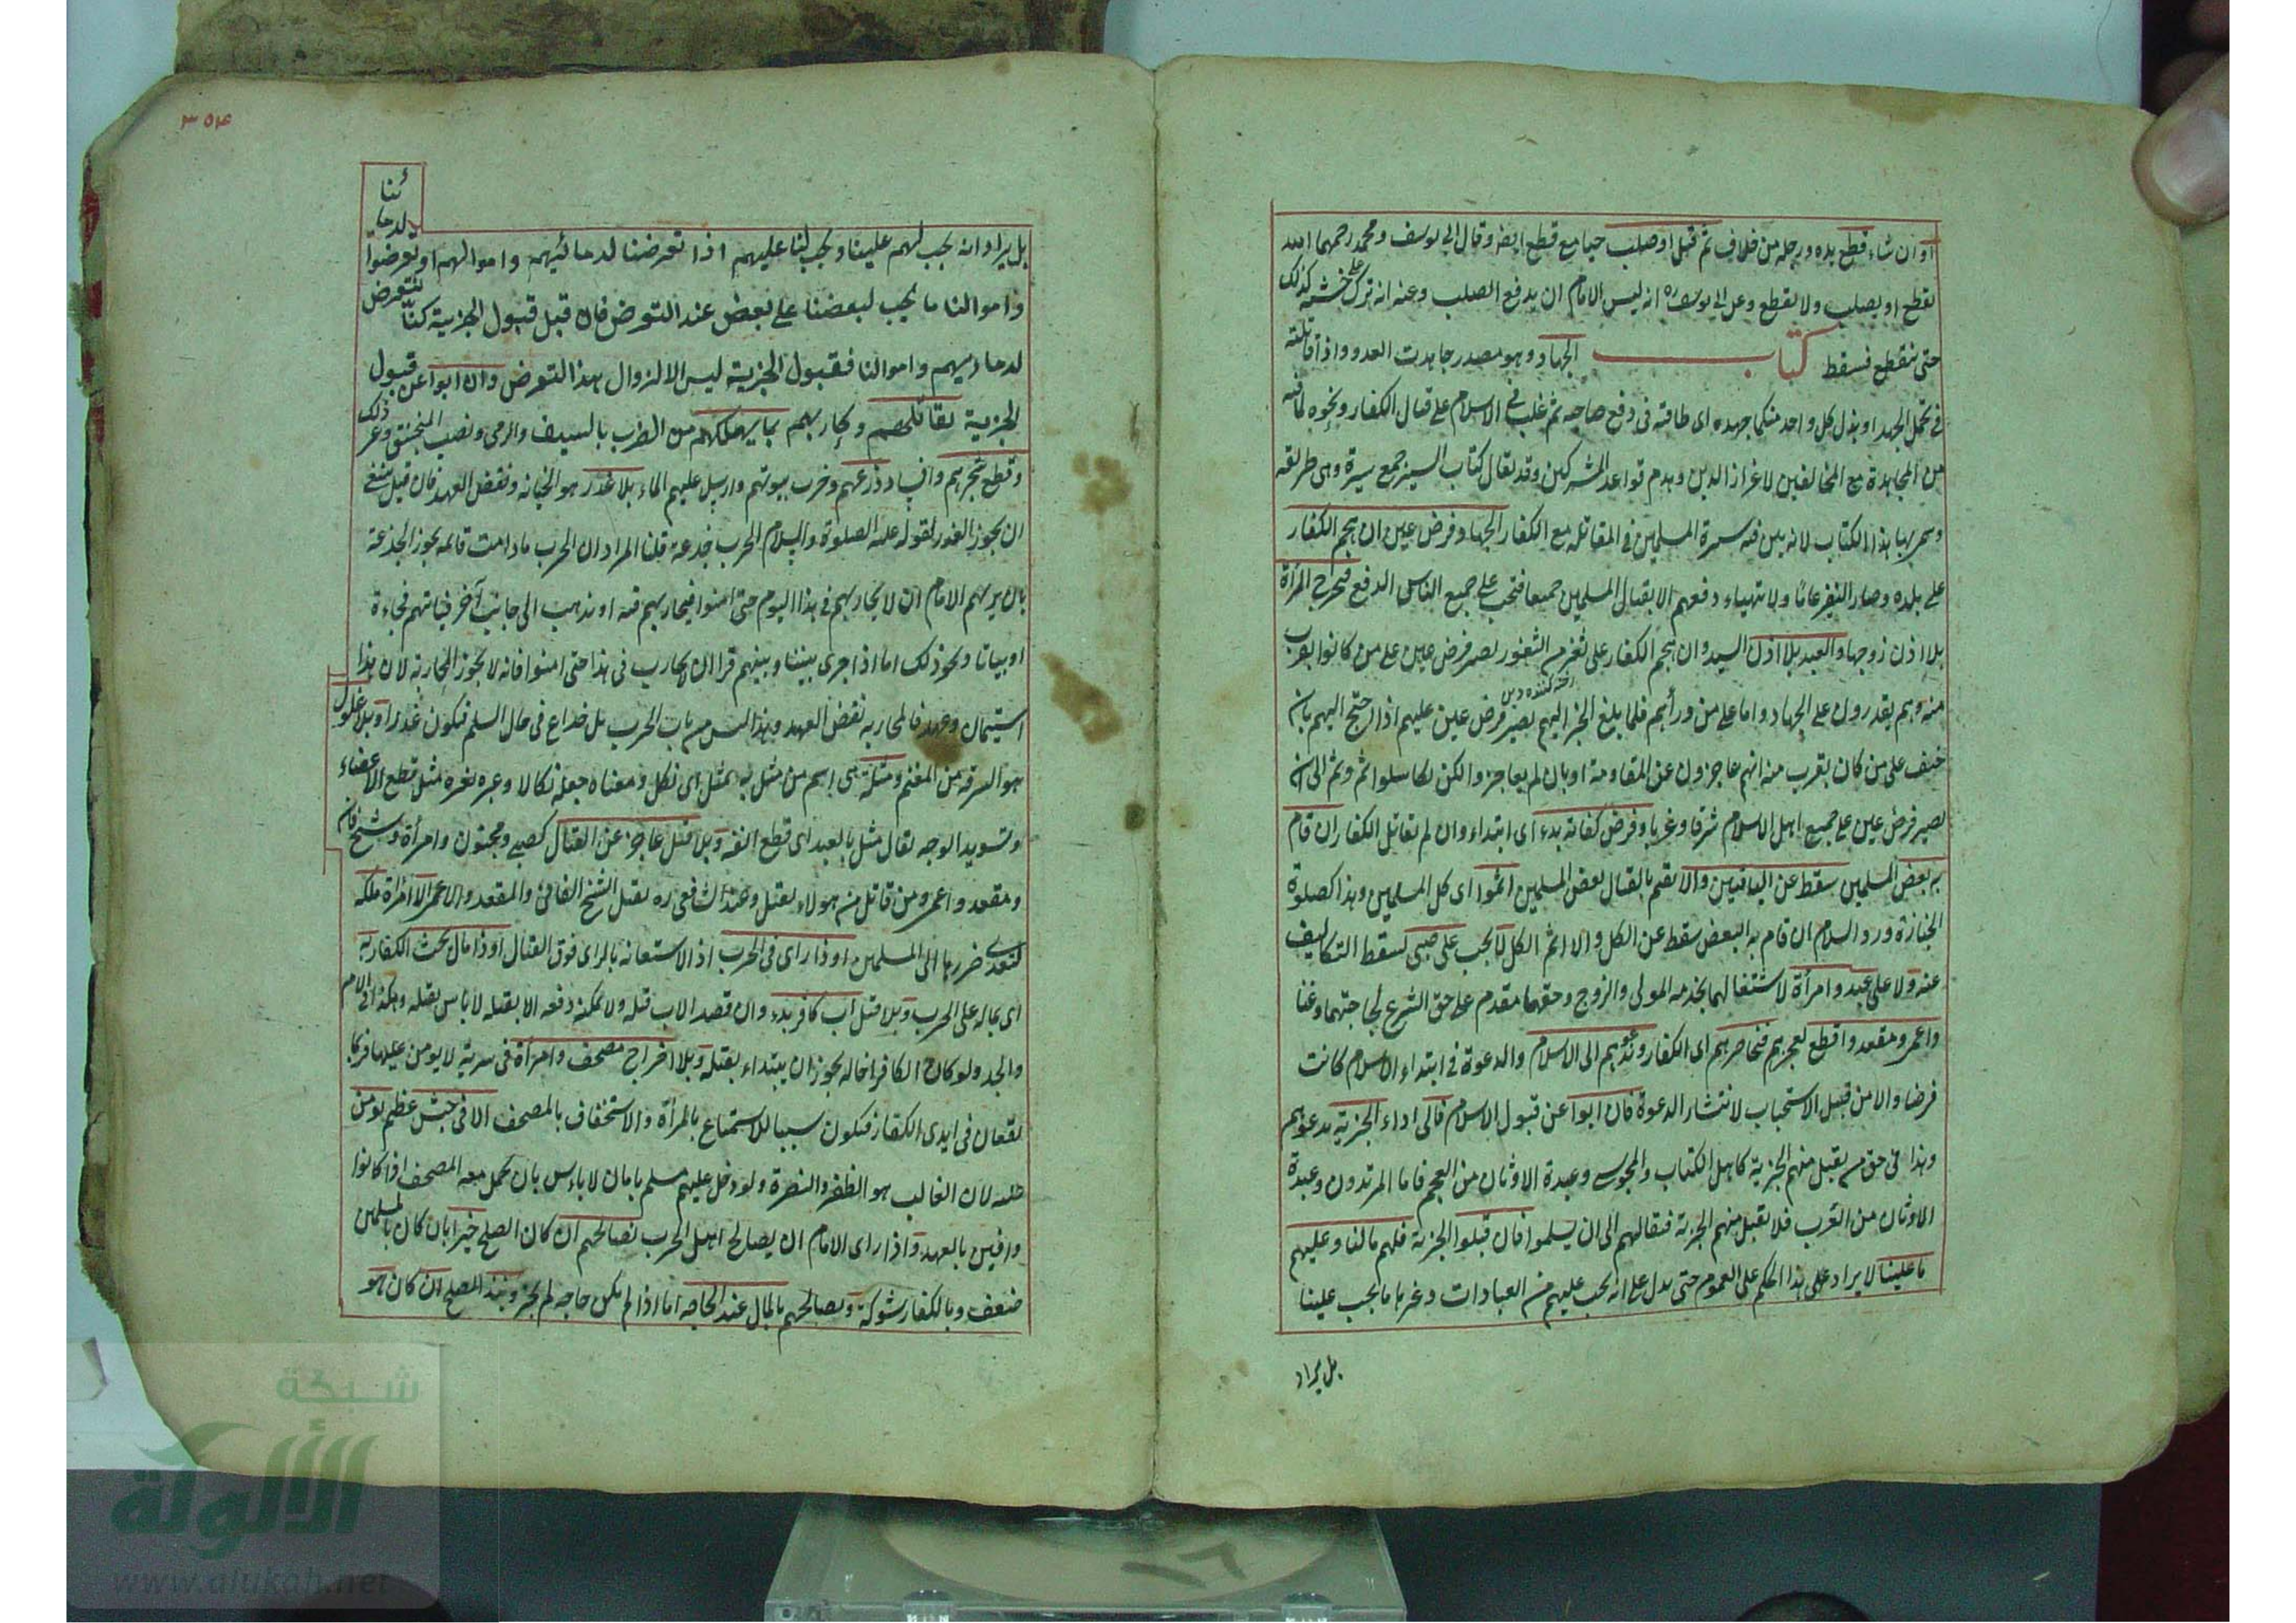 او ان شاء قطع يده ورجله من خلاف ثم قتل او صلب حيا مع قطع ايضا وقال ابي يوسف ومحمد رحمهما الله
يقطع او يصلب ولا يقطع وعن ابي يوسف ره انه ليس الامام ان يدفع الصلب وعنه انه ترك على خشبه كذلك
حتى ينقطع فسقط كتاب الجهاد وهو مصدر جاهدت العدو واذا قاتلته
في تحمل الجهد او بذل كل واحد منكما جهده اى طاقته فى دفع صاحبه ثم غلب فى الاسلام على قتال الكفار ونحوه لما فيه
من المجاهدة مع المخالفين لاعزاز الدين وهدم قواعد المشركين وقد يقال كتاب السير جمع سيرة وهى طريقه
وسمى بها هذا الكتاب لانه بين فيه سيرة المسلمين فى المقاتله مع الكفار الجهاد فرض عين ان هجم الكفار
على بلده وصار النفير عامًا ولا تتهياء دفعهم الا بقتال المسلمين جميعا فتجب على جميع الناس الدفع فتخرج المرأة
بلا اذن زوجها والعبد بلا اذن السيد وان هجم الكفار على ثغر من الثغور يصير فرض عين على من كانوا بقرب
منه وهم يقدرون على الجهاد واما على من ورأيهم فلما بلغ الخبر اليهم يصير فرض عين عليهم اذا احتج اليهم بان
خيف على من كان بقرب منه انهم عاجزون عن المقاومة او بان لم يعاجزوا لكن تكاسلوا ثم وثم الى ان
يصير فرض عين على جميع اهل الاسلام شرقا وغربا وفرض كفاية بدء اى ابتداء وان لم تقاتل الكفار ان قام
به بعض المسلمين سقط عن الباقيين والا يقم بالقتال بعض المسلمين اثموا اى كل المسلمين وهذا كصلوة
الجنازة ورد السلام ان قام به البعض سقط عن الكل والا اثم الكل لا يجب على صبى لسقط التكاليف
عنه ولا على عبد وامرأة لاشتغالهما بخدمه المولى والزوج وحقهما مقدم على حق الشرع لحاجتهما وغنا
واعمى ومقعد واقطع لعجزهم فنحاصرهم اى الكفار وندعوهم الى الاسلام والدعوة فى ابتداء الاسلام كانت
فرضا والا من قبيل الاستحباب لانتشار الدعوة فان ابوا عن قبول الاسلام فالى اداء الجزية يدعوهم
وهذا فى حق من يقبل منهم الجزية كاهل الكتاب والمجوس وعبدة الاوثان من العجم فاما المرتدون وعبدة
الاوثان من العرب فلا يقبل منهم الجزية فنقاتلهم الى ان يسلموا فان قبلوا الجزية فلهم ما لنا وعليهم
ما علينا لا يراد على هذا الحكم على العموم حتى يدل على انه يجب عليهم من العبادات وغيرها ما يجب علينا
بل يراد
٣٥٤
بل يراد انه يجب لهم علينا ويجب لنا عليهم اذا تعرضنا لدمائهم واموالهم او تعرضوا لدمائنا
واموالنا ما يجب لبعضنا على بعض عند التعرض فان قبل قبول الجزية كنا نتعرض
لدماءهم واموالنا فقبول الجزية ليس الا لزوال هذا التعرض وان ابوا عن قبول
الجزية نقاتلهم ونحاربهم بما يهلكهم من الضرب بالسيف والرمى ونصب المنجنيق وغير ذلك
وقطع شجرهم وافساد زرعهم وخرب بيوتهم وارسل عليهم الماء بلا غدر هو الخيانه ونقض العهد فان قيل ينبغى
ان يجوز الغدر لقوله عليه الصلوة والسلام الحرب خدعة قلنا المراد ان الحرب ما دامت قائمه يجوز الخدعة
بان يريهم الامام ان لا يحاربهم فى هذا اليوم حتى امنوا فيحاربهم فيه او يذهب الى جانب آخر فياتهم فجاءة
او بياتا ونحو ذلك اما اذا جرى بيننا وبينهم قرا ان لا يحارب فى هذا حتى امنوا فانه لا يجوز المحاربة لان هذا
استيمان وعهد فالمحاربه نقض العهد وهذا ليس من باب الحرب بل خداع فى حال السلم فيكون غدرا وبلا غلول
هو السرقه من المغنم ومثلة هى اسم من مثل به يمثل اى نكل ومعناه جعله نكالا وعبرة لغيره مثل قطع الاعضاء
وتسويد الوجه يقال مثل بالعبد اى قطع انفه وبلا قتل عاجز عن القتال كصبى ومجنون وامرأة وشيخ فان
ومقعد واعمى ومن قاتل من هولاء يقتل وعند الشافعى ره يقتل الشيخ الفانى والمقعد والاعمى الا امرأة ملكه
لتعدى ضررها الى المسلمين او ذا راى فى الحرب اذ الاستعانه بالراى فوق القتال او ذا مال يحث الكفار به
اى بماله على الحرب وبلا قتل اب كافر بدء وان قصد الاب قتله ولا يمكنه دفعه الا بقتله لا باس بقتله وهكذا فى الام
والجد ولو كان الكافر اخاله يجوز ان يبتداء بقتله وبلا اخراج مصحف وامرأة فى سرية لا يومن عليها فربما
يقعان فى ايدى الكفار فيكون سببا للاستمتاع بالمرأة والاستخفاف بالمصحف الا فى جيش عظيم يومن
عليه لان الغالب هو الظفر والنصرة ولو دخل عليهم مسلم بامان لا باس بان يحمل معه المصحف اذا كانوا
وافين بالعهد واذا راى الامام ان يصالح اهل الحرب نصالحهم ان كان الصلح خيرا بان كان بالمسلمين
ضعف وبالكفار شوكة ويصالحهم بالمال عند الحاجه اما اذا لم يكن حاجه لم يجز ونبذ الصلح ان كان هو
شبكة
الألوكة
www.alukah.net